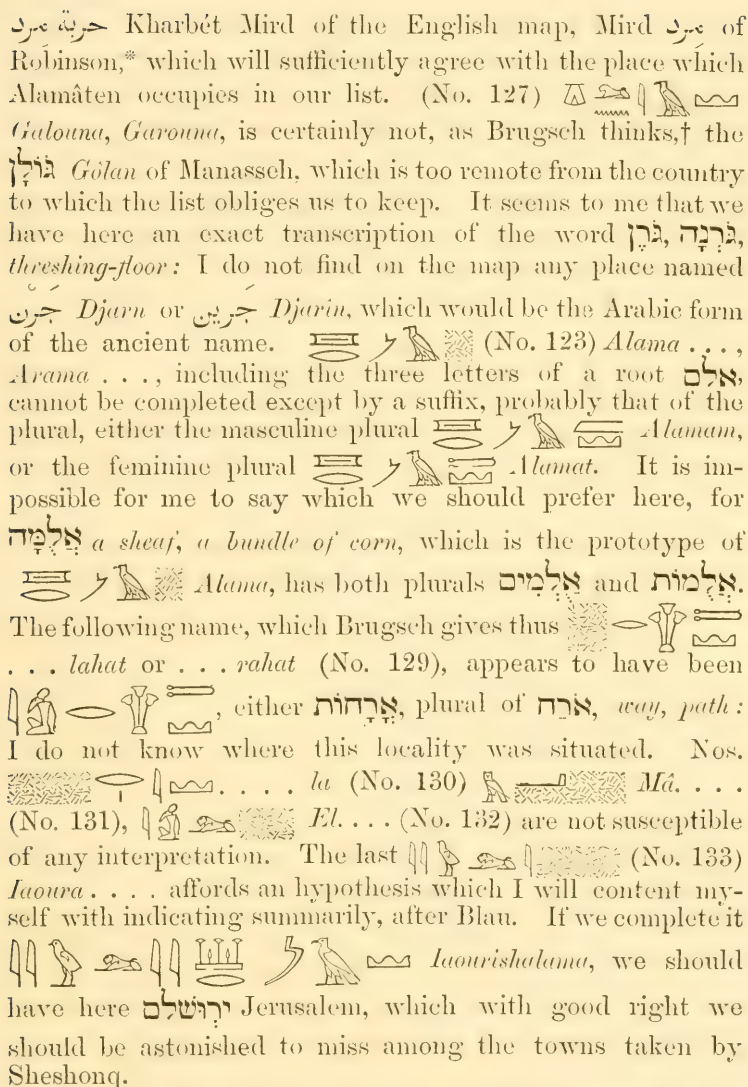 خربة مرد Kharbét Mird of the English map, Mird مرد of
Robinson,* which will sufficiently agree with the place which
Alamâten occupies in our list. (No. 127)
Galouna, Garouna, is certainly not, as Brugsch thinks,† the
גּוֹלָן Gôlan of Manasseh, which is too remote from the country
to which the list obliges us to keep. It seems to me that we
have here an exact transcription of the word גֹּרֶן, גֹּרְנָה,
threshing-floor: I do not find on the map any place named
جرن Djarn or جرين Djarîn, which would be the Arabic form
of the ancient name. (No. 123) Alama . . . ,
Arama . . . , including the three letters of a root אלם,
cannot be completed except by a suffix, probably that of the
plural, either the masculine plural Alamam,
or the feminine plural Alamat. It is im-
possible for me to say which we should prefer here, for
אֲלֻמָּה a sheaf, a bundle of corn, which is the prototype of
Alama, has both plurals אֲלֻמִּים and אֲלֻמּוֹת.
The following name, which Brugsch gives thus
. . . lahat or . . . rahat (No. 129), appears to have been
, either אֳרָחוֹת, plural of אֹרַח, way, path:
I do not know where this locality was situated. Nos.
. . . . la (No. 130) Mâ. . . .
(No. 131), El. . . . (No. 132) are not susceptible
of any interpretation. The last (No. 133)
Iaoura . . . . affords an hypothesis which I will content my-
self with indicating summarily, after Blau. If we complete it
Iaourishalama, we should
have here ירושלם Jerusalem, which with good right we
should be astonished to miss among the towns taken by
Sheshonq.